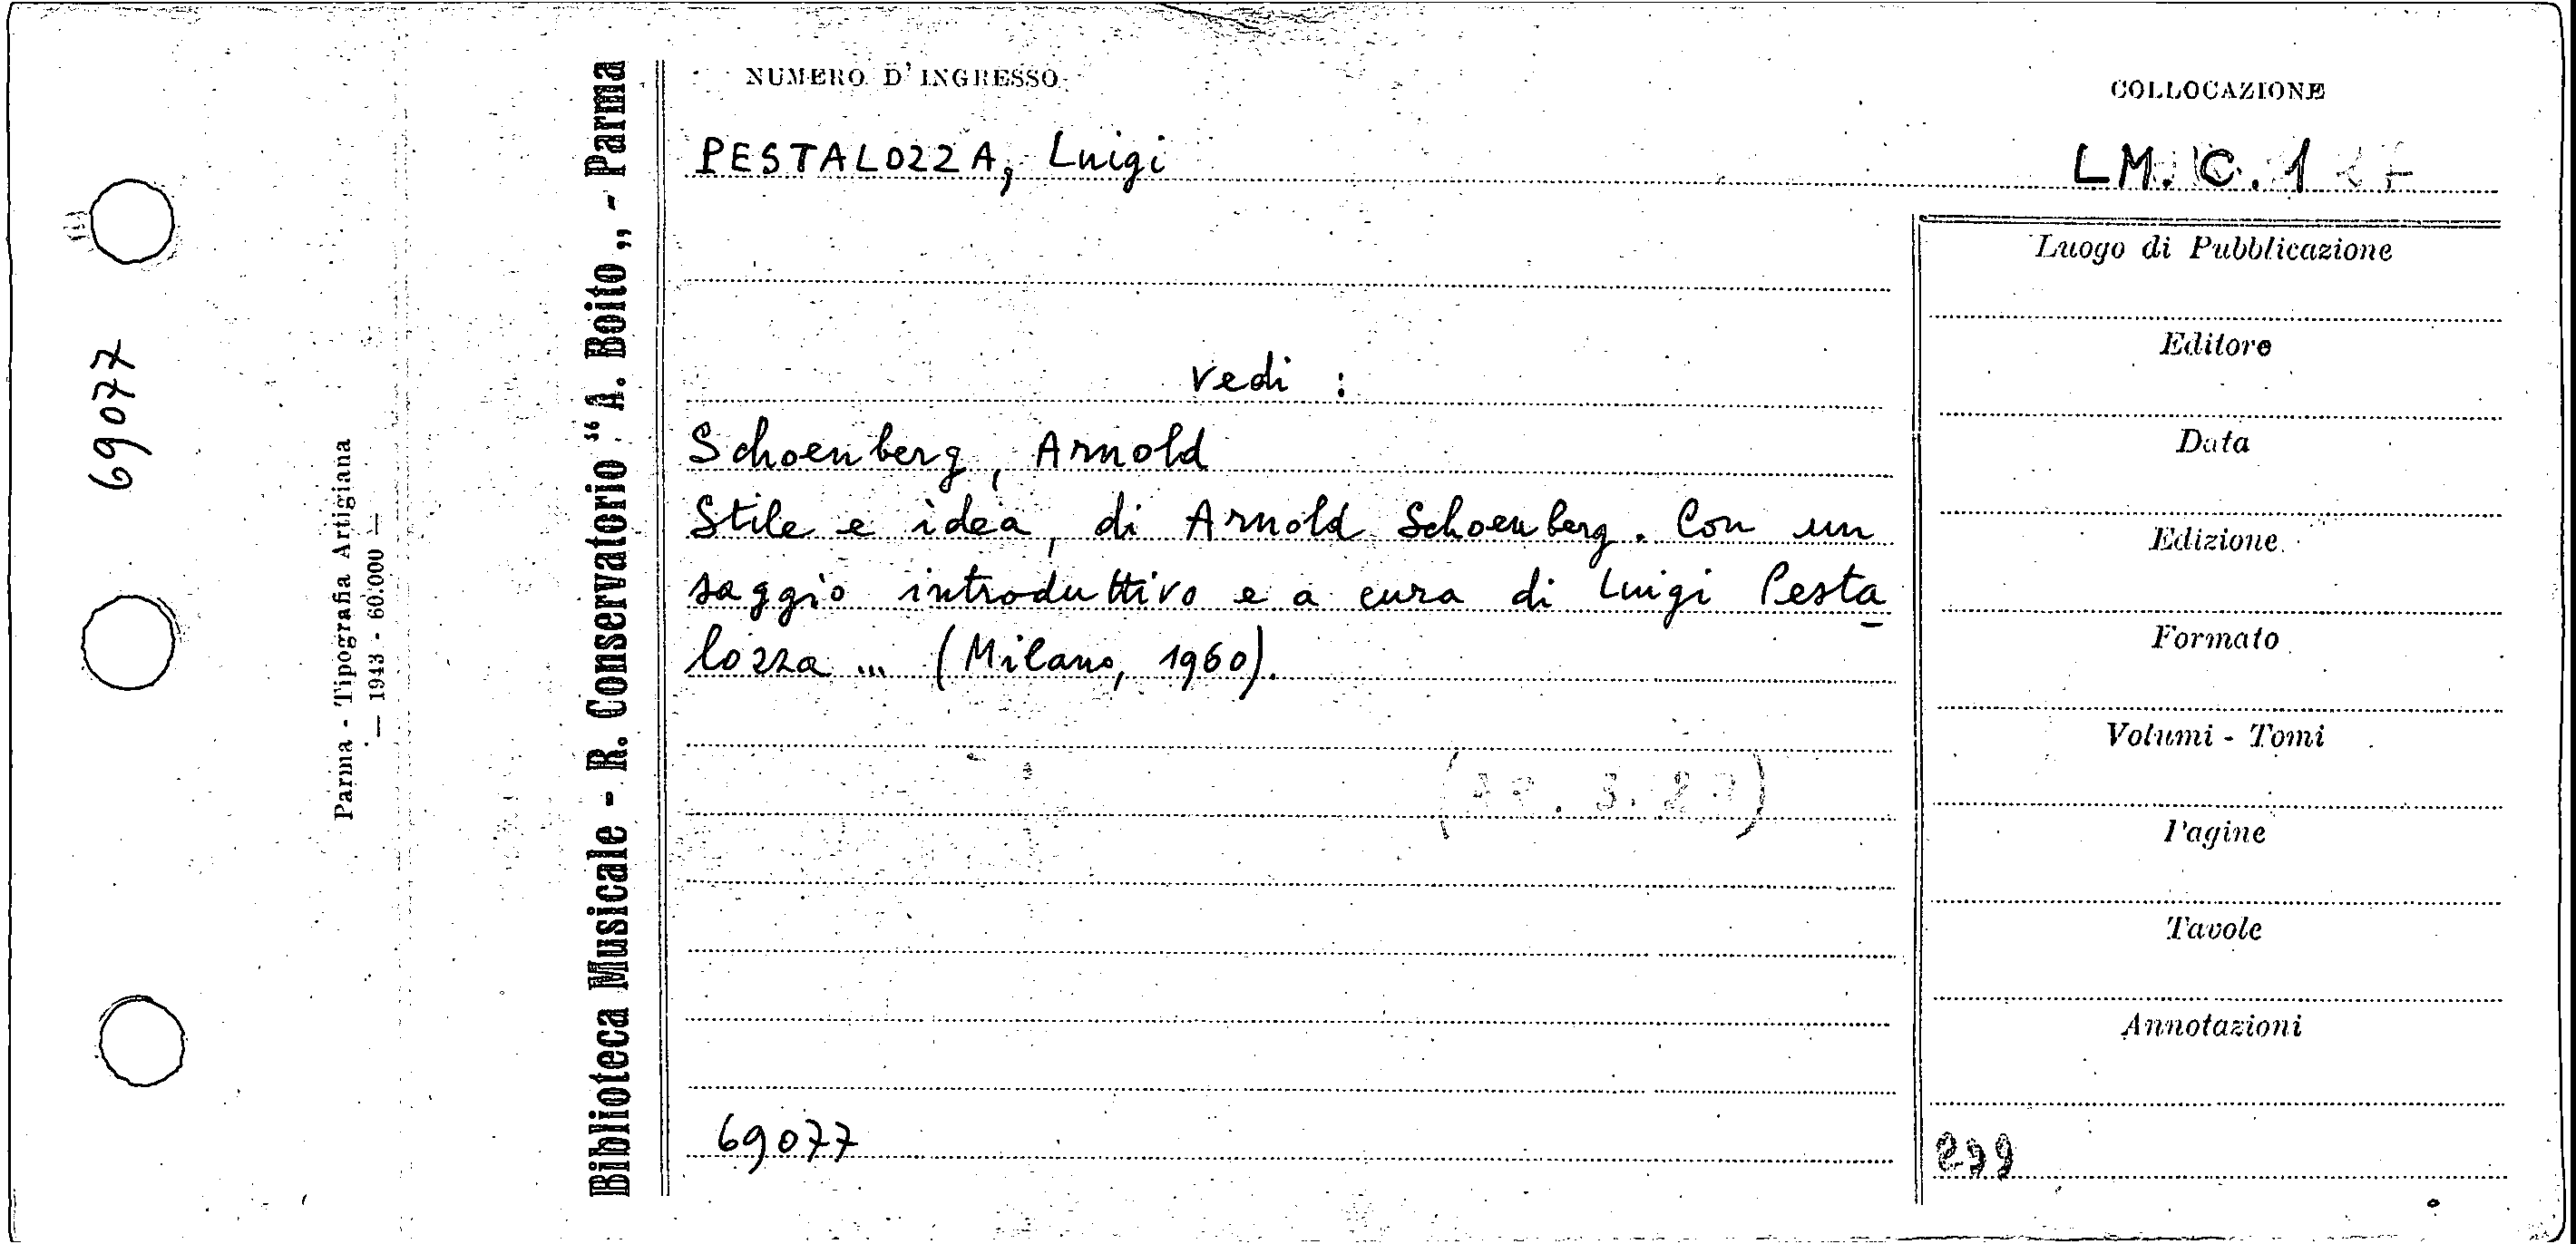 69077
Parma - Tipografia Artigiana
— 1943 - 60.000 —
Biblioteca Musicale - R. Conservatorio “A. Boito„ - Parma
NUMERO D'INGRESSO
COLLOCAZIONE
PESTALOZZA, Luigi
LM. C. 1
vedi :
Schoenberg, Arnold
Stile e idea, di Arnold Schoenberg. Con un
saggio introduttivo e a cura di Luigi Pesta
lozza ... (Milano, 1960).
69077
Luogo di Pubblicazione
Editore
Data
Edizione
Formato
Volumi - Tomi
Pagine
Tavole
Annotazioni
299